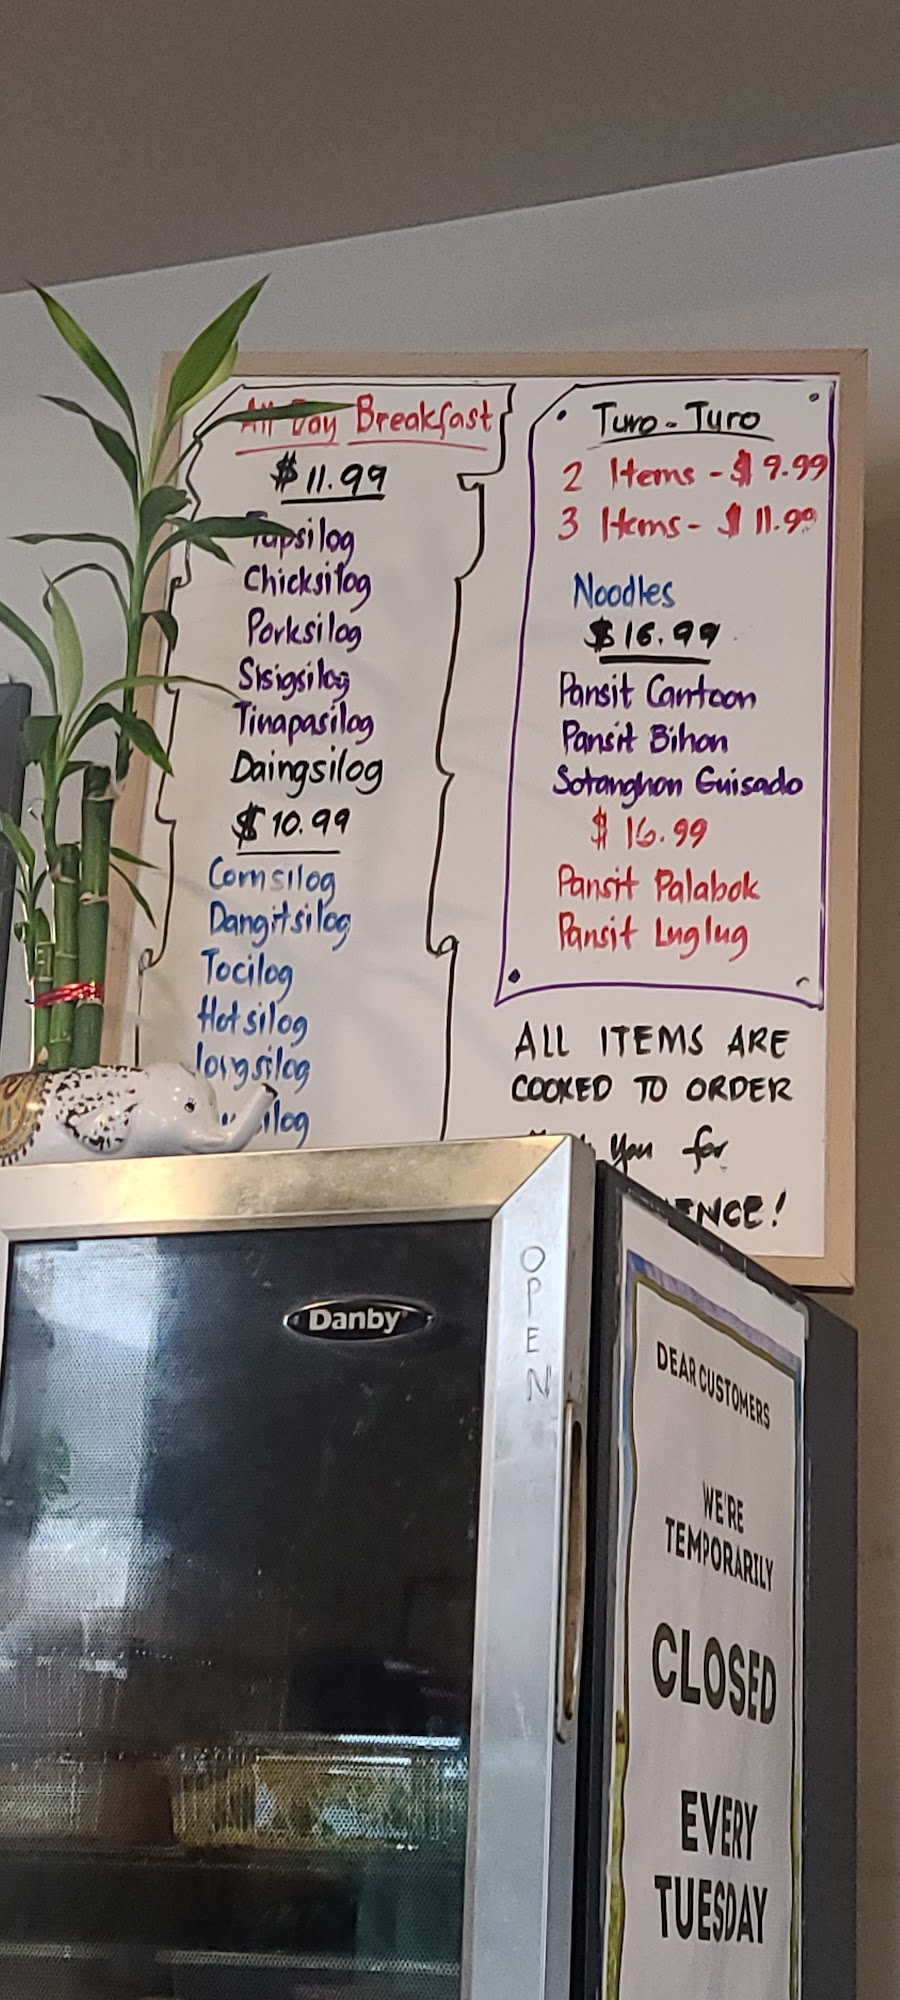 All Day Breakfast
$11.99
Tapsilog
Chicksilog
Porksilog
Sisigsilog
Tinapasilog
Daingsilog
$10.99
Cornsilog
Dangitsilog
Tocilog
Hotsilog
longsilog
Turo-Turo
2 Items - $9.99
3 Items - $11.99
Noodles
$16.99
Pansit Cantoon
Pansit Bihon
Sotanghon Guisado
$16.99
Pansit Palabok
Pansit Luglug
ALL ITEMS ARE
COOKED TO ORDER
You for
Danby
OPEN
DEAR CUSTOMERS
WE'RE
TEMPORARILY
CLOSED
EVERY
TUESDAY